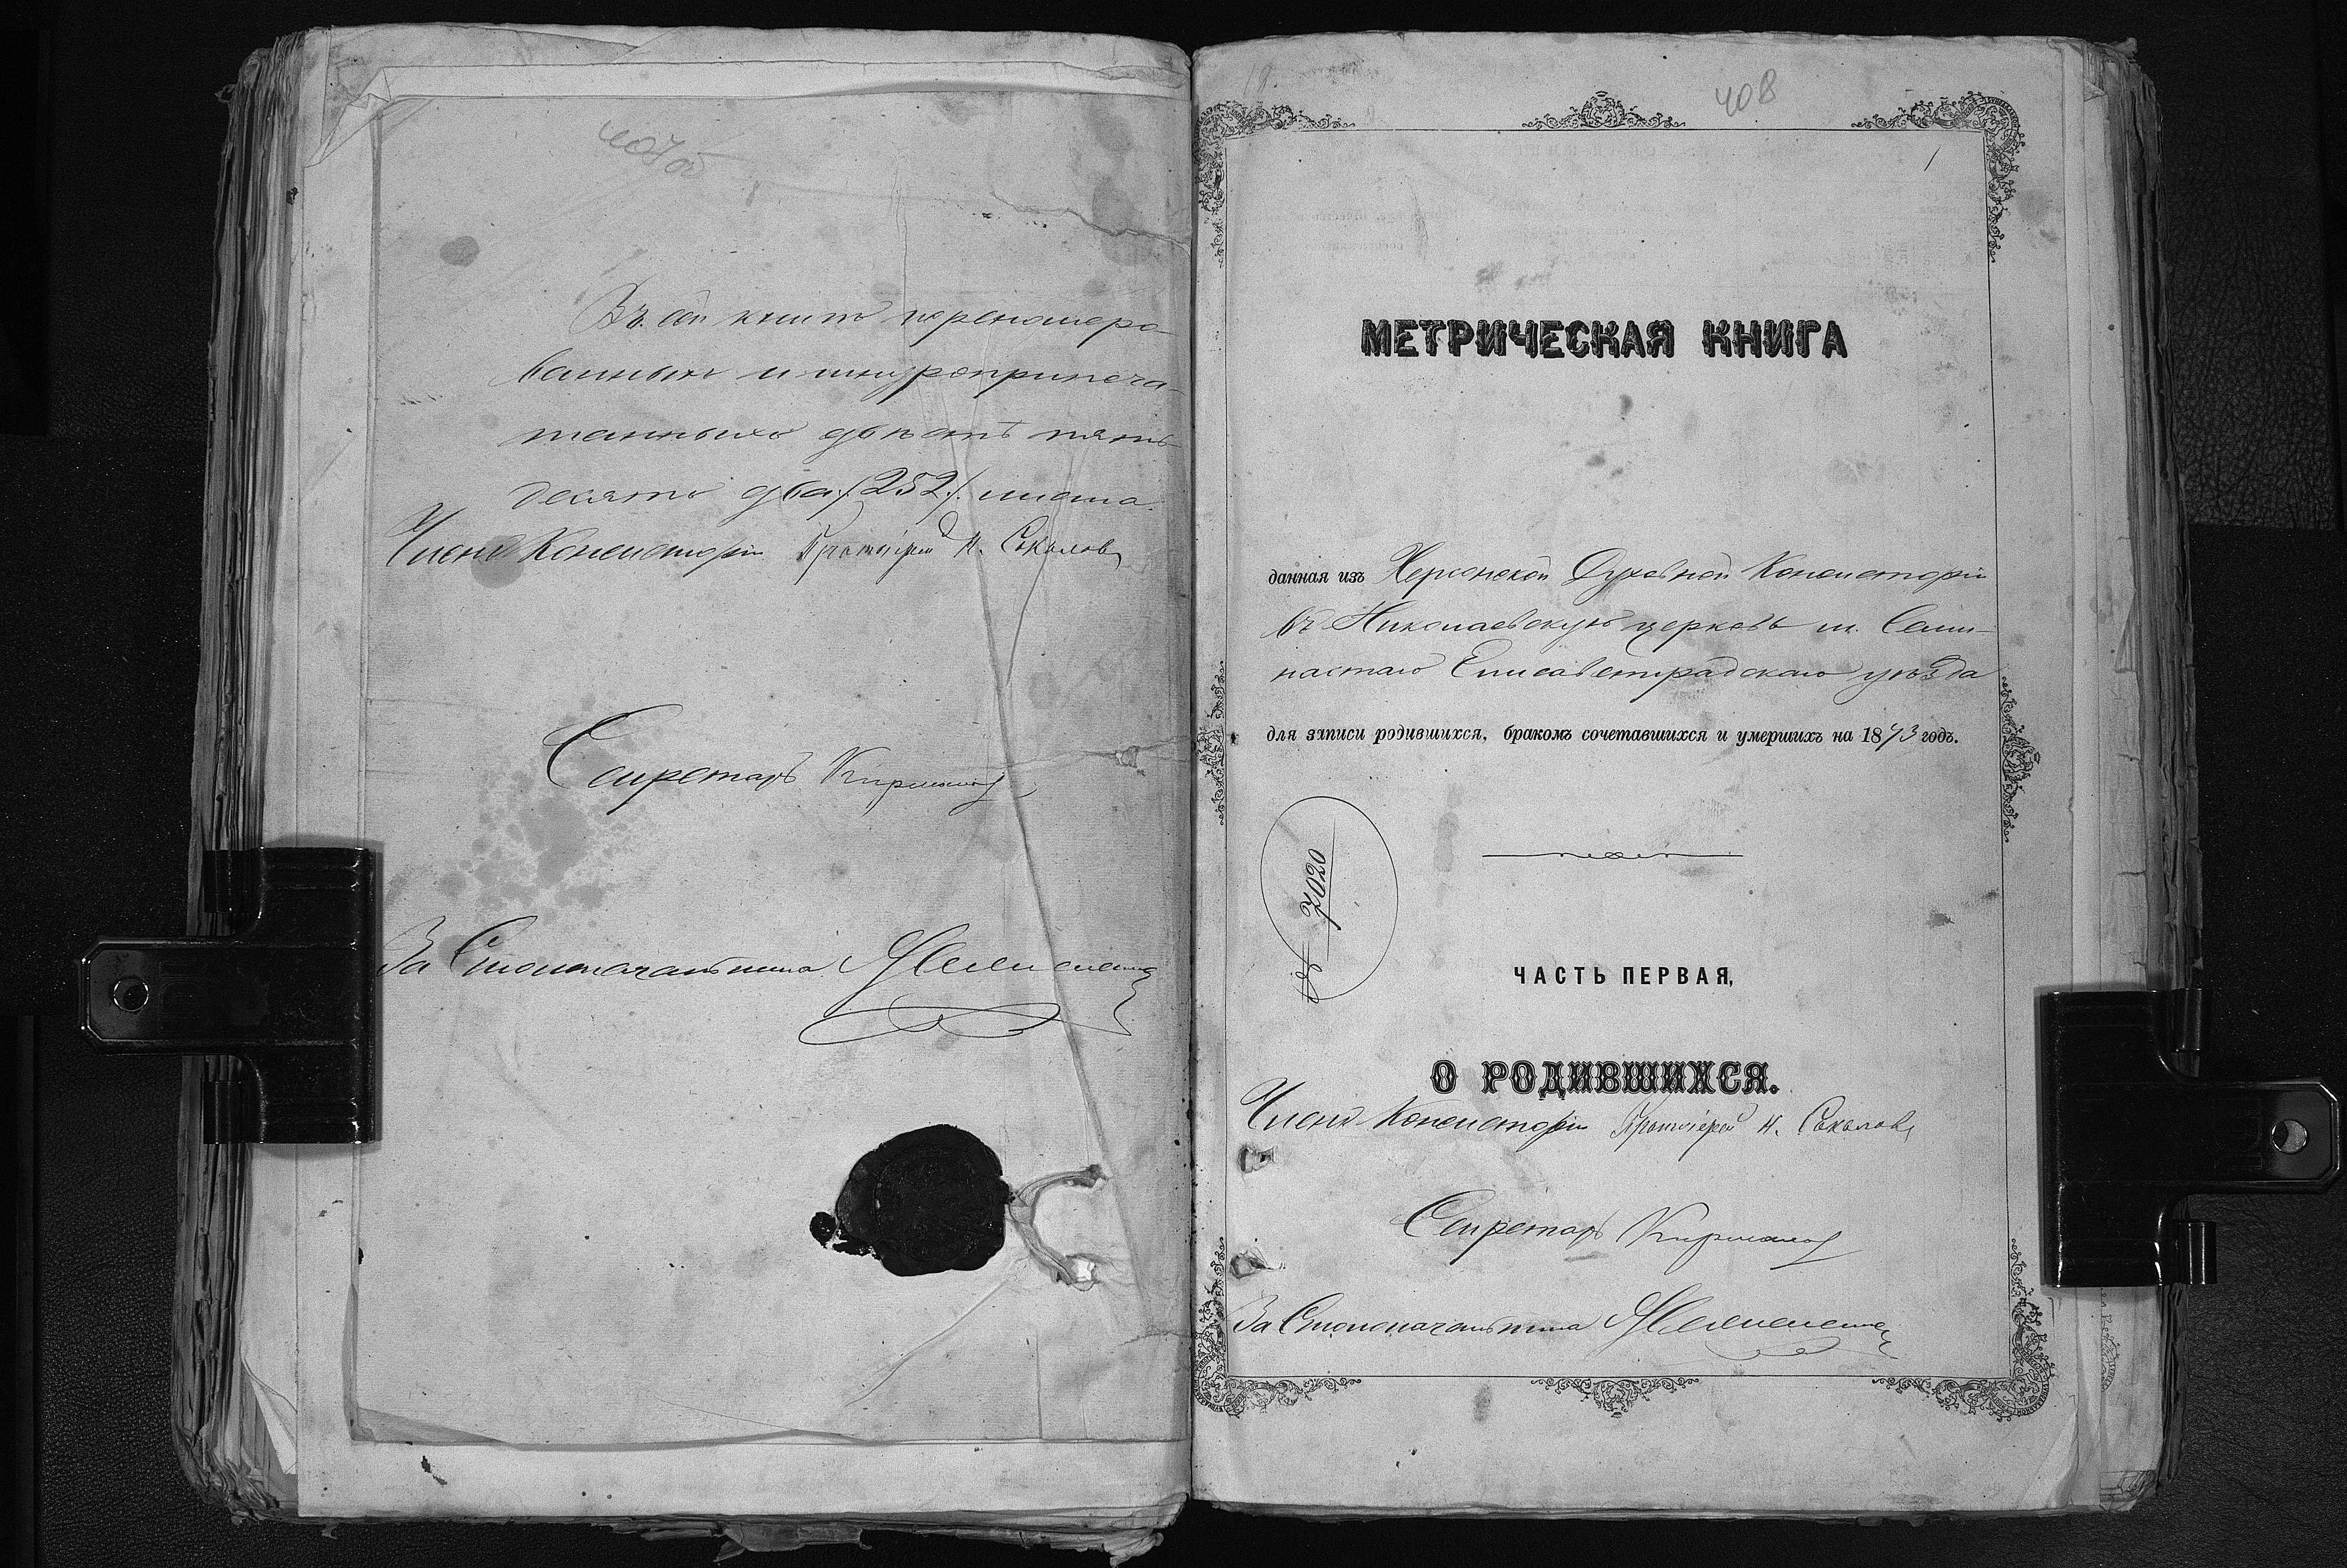 407об
Въ сей книгѣ перенумеро-
ванныхъ и шнуроприпеча-
танныхъ двѣсти пять-
десятъ два /252/. листа.
Членъ Консисторіи Протоіерей Н. Соколовъ
Секретарь
За Столоначальника
408
1
МЕТРИЧЕСКАЯ КНИГА
данная изъ Херсонской Духовной Консисторіи
въ Николаевскую церковь м. Семи-
настаго Елисаветградскаго уѣзда
для записи родившихся, бракомъ сочетавшихся и умершихъ на 1873 годъ.
№ 7020
ЧАСТЬ ПЕРВАЯ,
О РОДИВШИХСЯ.
Членъ Консисторіи Протоіерей Н. Соколовъ
Секретарь
За Столоначальника